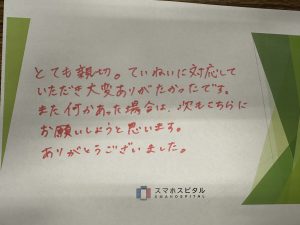 とても親切。ていねいに対応して
いただき大変ありがたかったです。
また何かあった場合は、次もこちらに
お願いしようと思います。
ありがとうございました。
スマホスピタル
SMAHOSPITAL